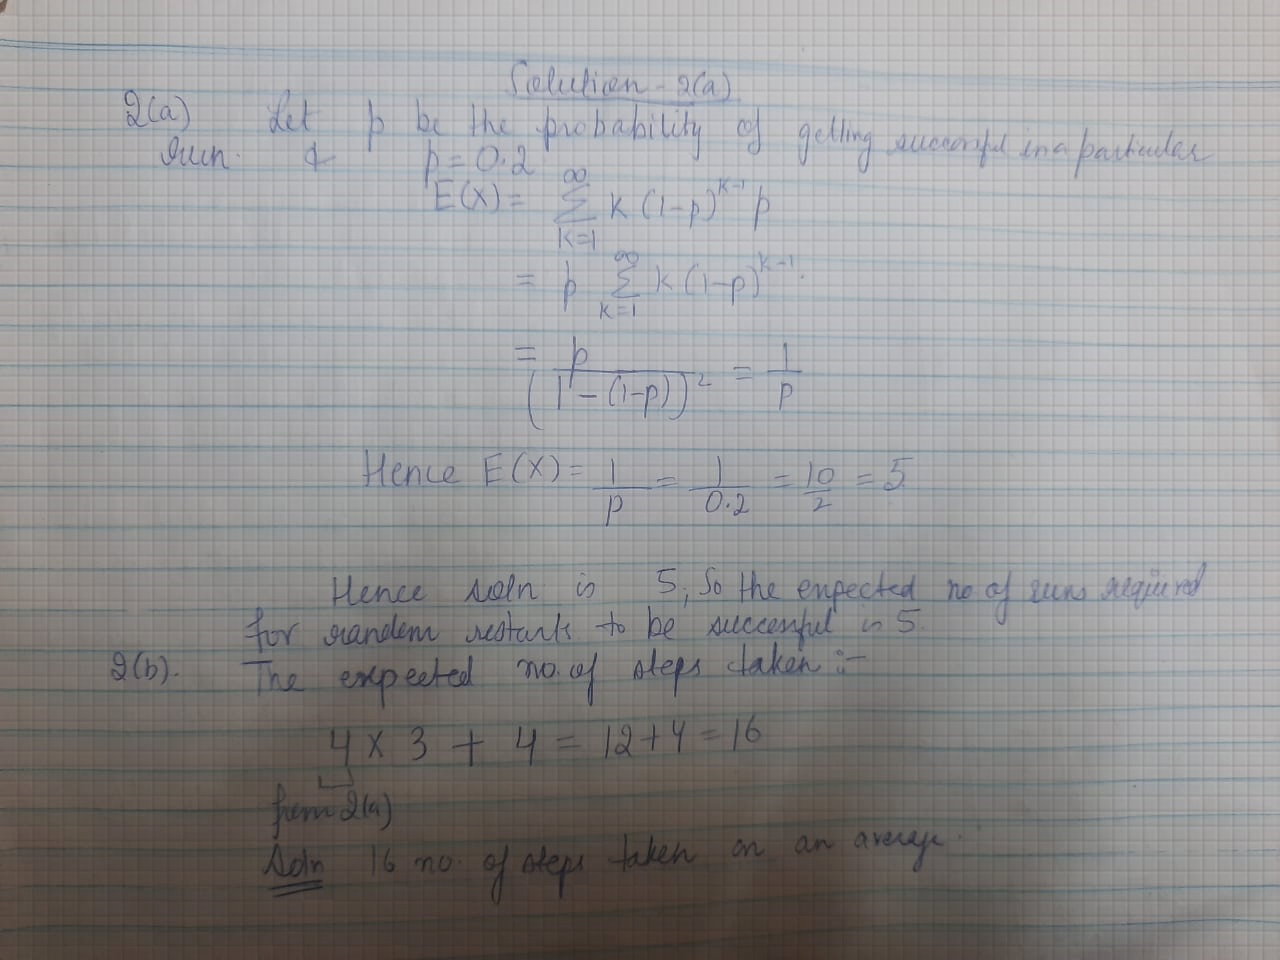 Solution - 2(a)
2(a) Let p be the probability of getting successful in a particular
run. & p = 0.2
E(X) = ∞ Σ K=1 K (1-p)^{K-1} p
= p ∞ Σ K=1 K (1-p)^{K-1}.
= p / (1 - (1-p))^2 = 1/p
Hence E(X) = 1/p = 1/0.2 = 10/2 = 5
Hence soln is 5, So the expected no of runs required
for random restarts to be successful is 5.
2(b). The expected no. of steps taken :-
4 × 3 + 4 = 12 + 4 = 16
from 2(a)
Soln 16 no. of steps taken on an average.